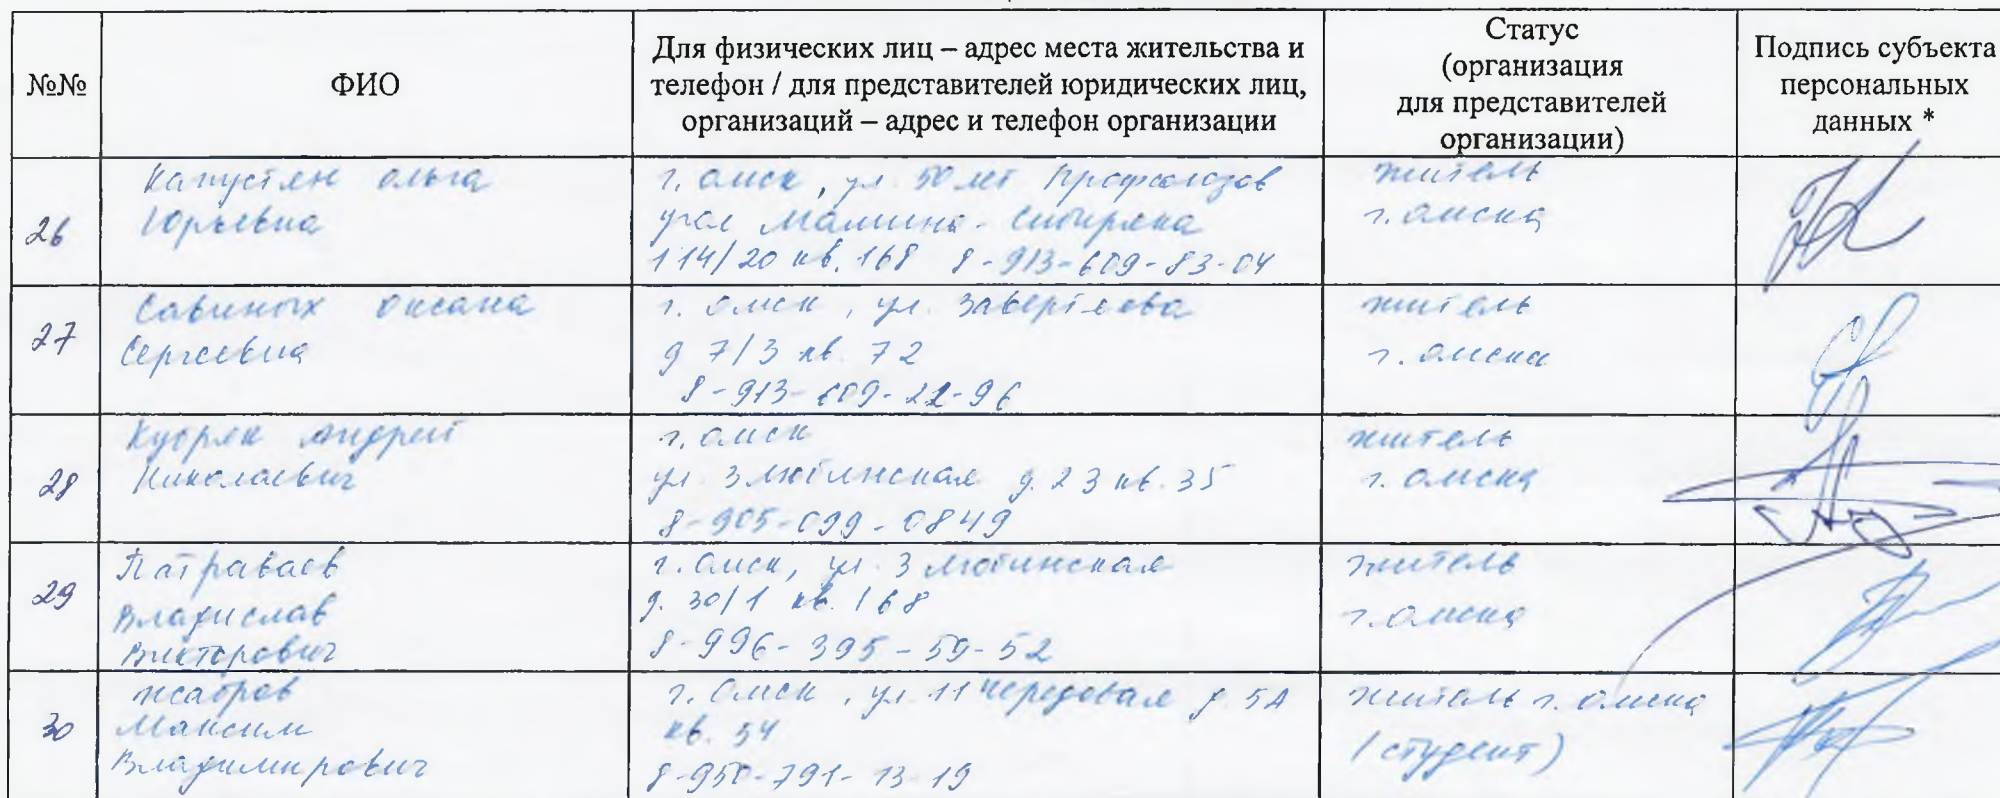 №№
ФИО
Для физических лиц – адрес места жительства и
телефон / для представителей юридических лиц,
организаций – адрес и телефон организации
Статус
(организация
для представителей
организации)
Подпись субъекта
персональных
данных *
26
Капустян Ольга
Юрьевна
г. Омск, ул 50 лет Профсоюзов
угол Мамина-Сибиряка
114/20 кв. 168 8-913-609-83-04
житель
г. Омска
27
Савиных Оксана
Сергеевна
г. Омск, ул. Завертяева
д 7/3 кв. 72
8-913-609-22-96
житель
г. Омска
28
Андрей
Николаевич
г. Омск
ул. 3 Любинская д. 23 кв. 35
8-905-099-0849
житель
г. Омска
29
Патраваев
Владислав
Викторович
г. Омск, ул. 3 Любинская
д. 30/1 кв. 168
8-996-395-59-52
житель
г. Омска
30
Жабров
Максим
Владимирович
г. Омск, ул. 11 Чередовая д. 5А
кв. 54
8-950-791-13-19
житель г. Омска
(студент)